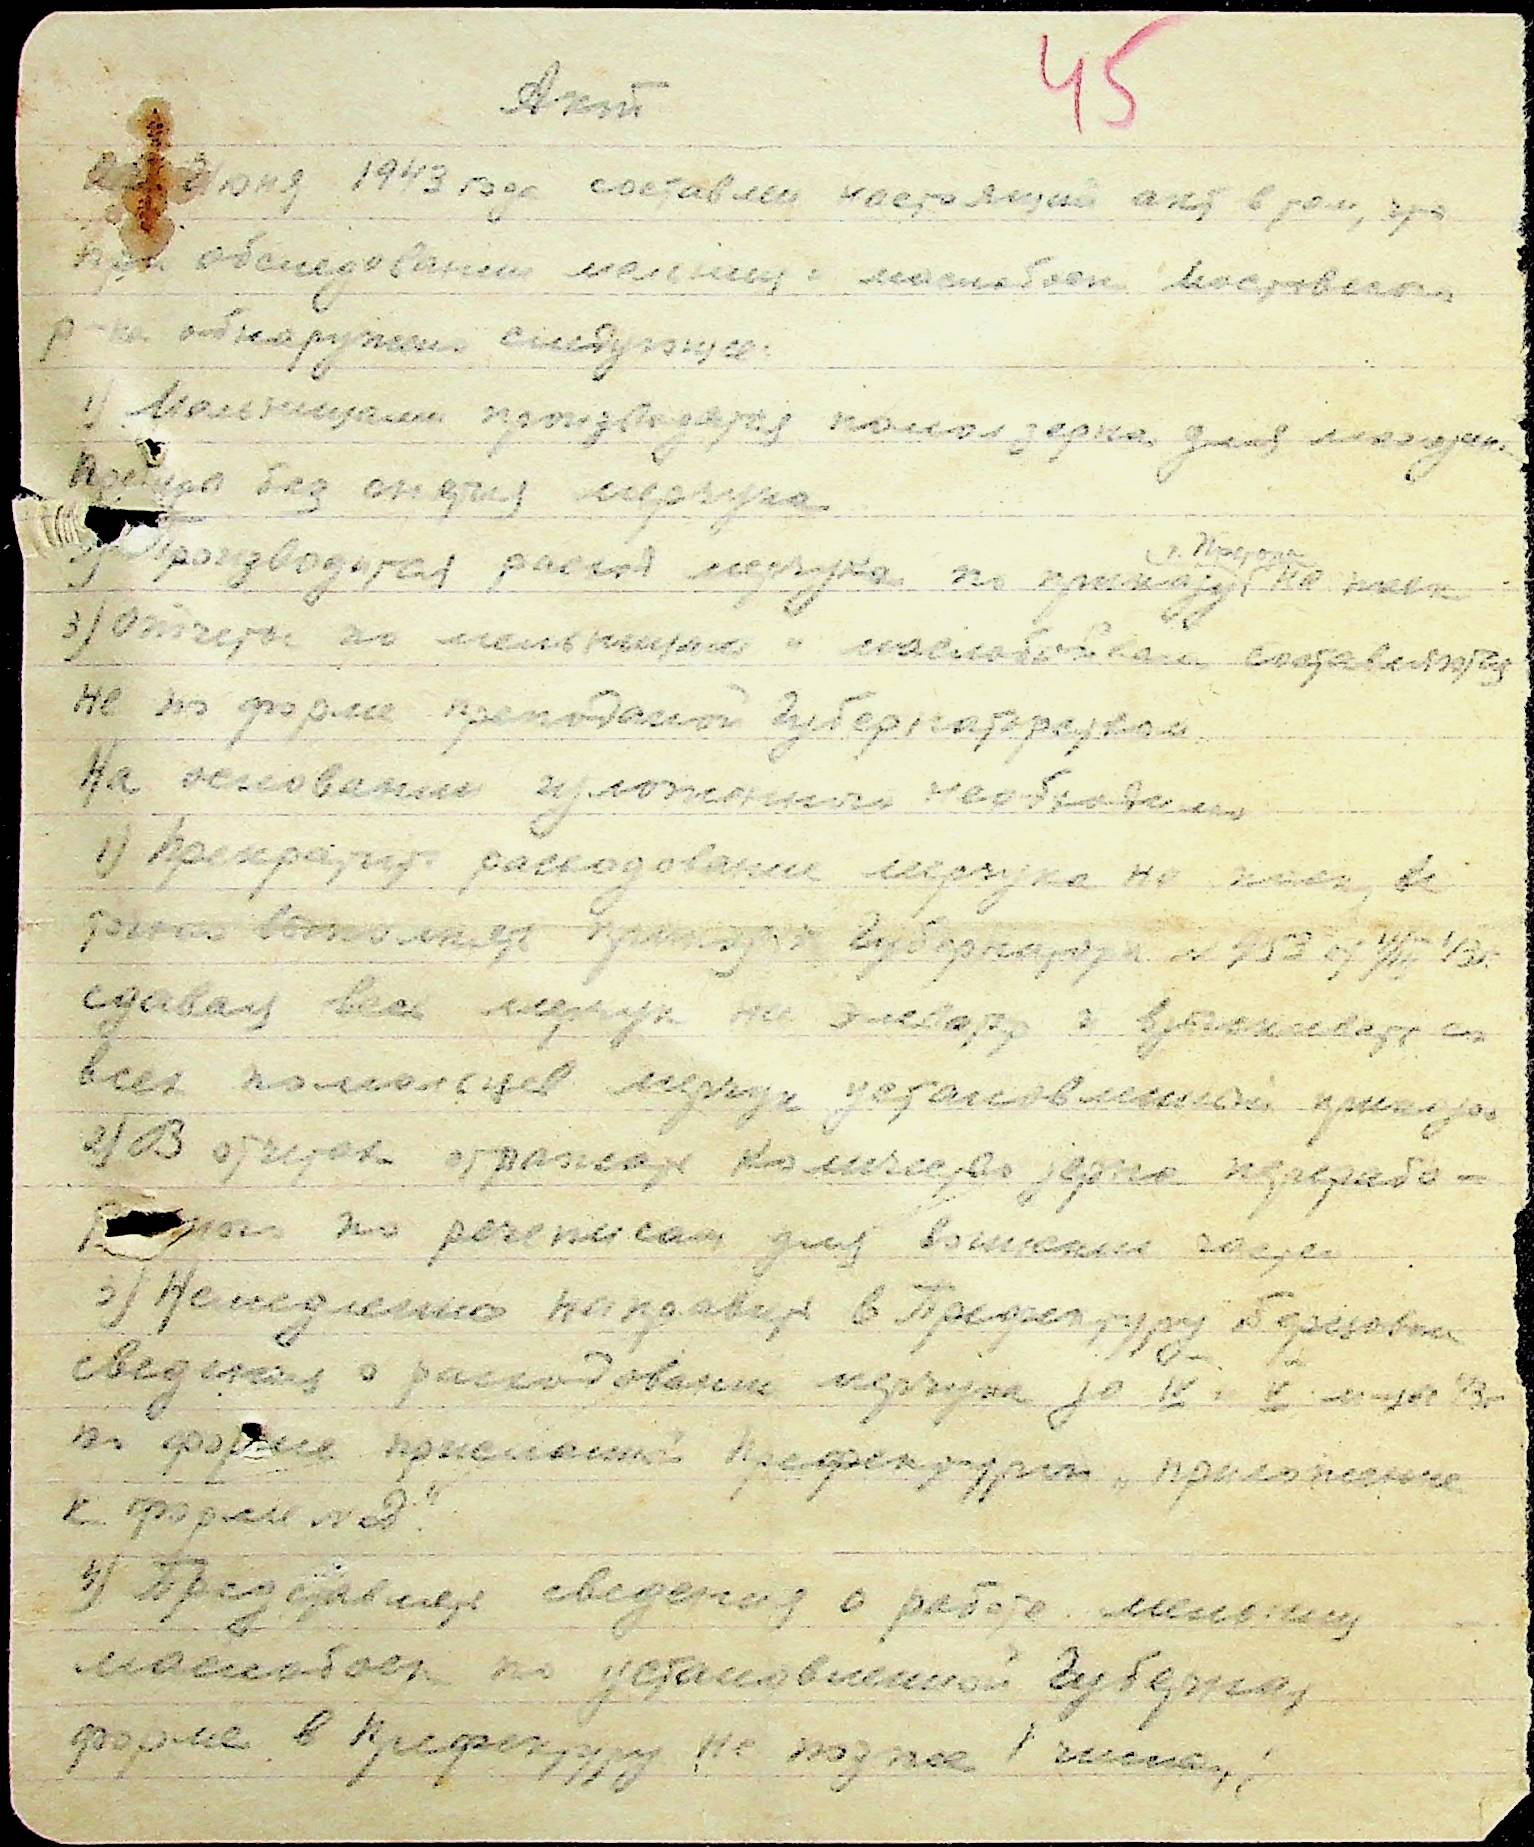 45
Акт
Июня 1943 года составлен настоящий акт в том, что
при обследовании мельниц и маслобоек Мостовского
р-на обнаружено следующее:
1) Мельницами производится помол зерна для
Претура без снятия мерчука
2) Производится расход мерчука по приказу г. Претора на
3) Отчеты по мельницам и маслобойкам составляются
не по форме преподанной Губернаторством
На основании изложенного необходимо
1) Прекратить расходование мерчука на
точно выполнять приказ Губернатора №
сдавая весь мерчук на элеватор и взыскивать со
всех помольцев мерчук установленный приказом
2) В отчетах отражать количество зерна перерабо-
по для
3) Немедленно направить в Префектуру Березовки
сведения о расходовании мерчука за IV и V м-цы 43г.
по форме присланной Префектурой „приложение
к форме №2"
4) Представлять сведения о работе мельниц
маслобоек по установленной Губернат.
форме в Префектуру не позже 1 числа